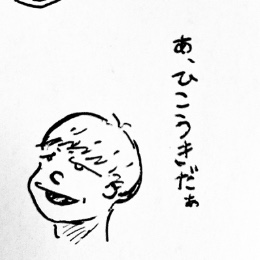 あ、ひこうきだぁ